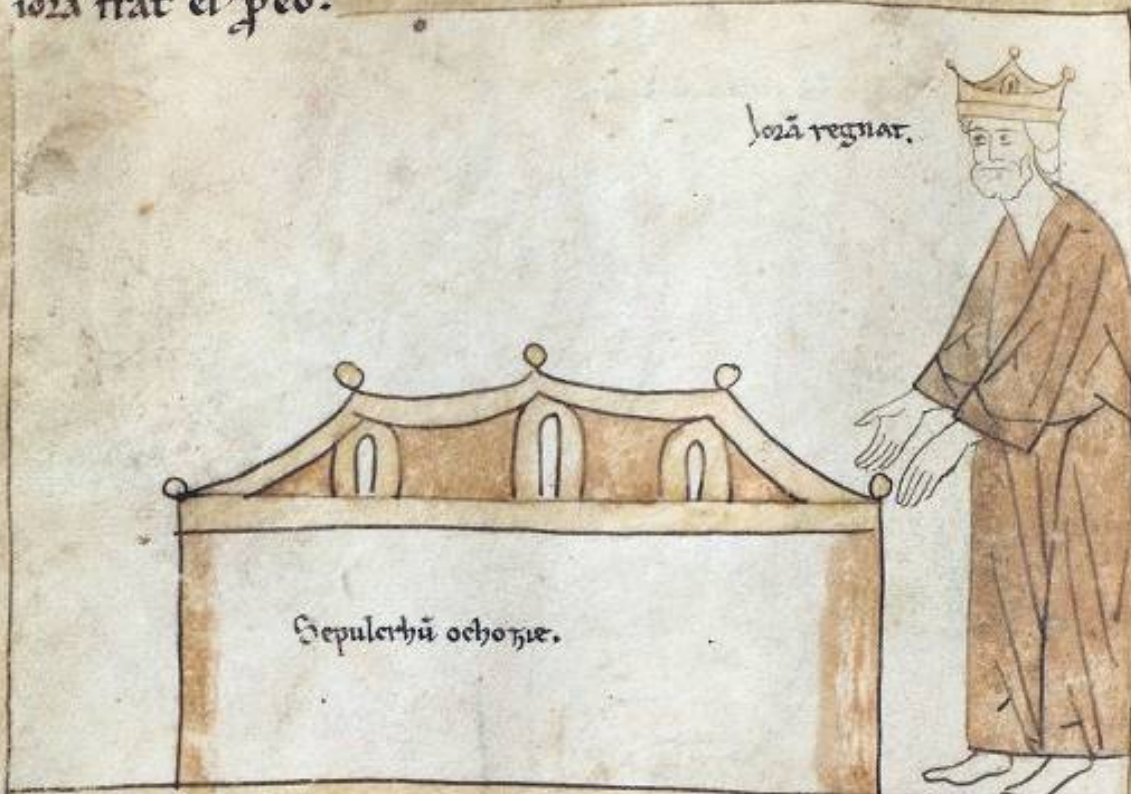 iorā frat̄ ei᷒ p̄ eo.
Jorā regnat.
Sepulcrhū ochozie.